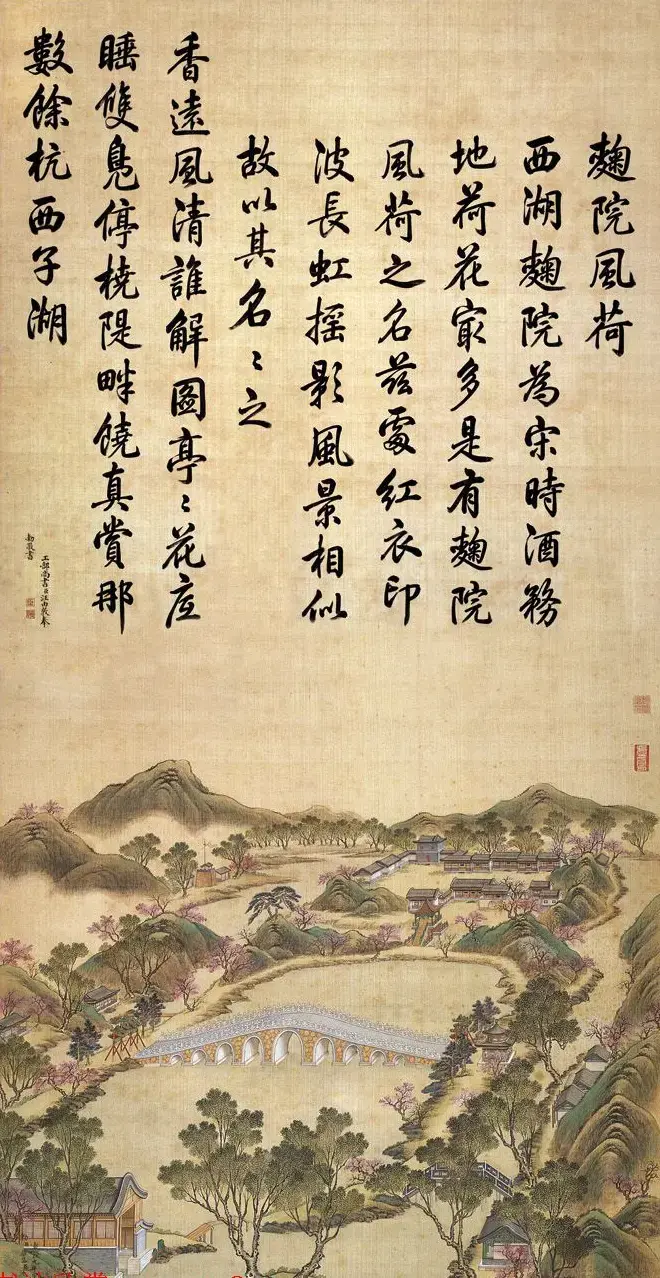 麴院風荷
西湖麴院為宋時酒務
地荷花冣多是有麴院
風荷之名茲處紅衣印
波長虹搖影風景相似
故以其名〻之
香遠風清誰解圖亭〻花底
睡雙鳧停橈隄畔饒真賞那
數餘杭西子湖
工部尚書臣汪由敦奉
勅敬書